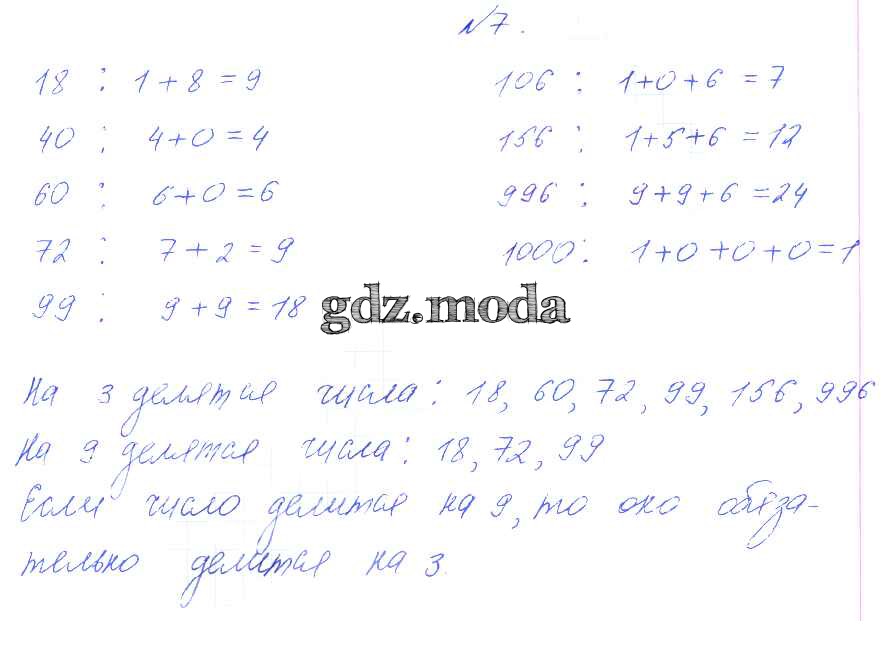 №7.
18 : 1+8=9
40 : 4+0=4
60 : 6+0=6
72 : 7+2=9
99 : 9+9=18
106 : 1+0+6=7
156 : 1+5+6=12
996 : 9+9+6=24
1000: 1+0+0+0=1
gdz.moda
На 3 делятся числа: 18, 60, 72, 99, 156, 996
На 9 делятся числа: 18, 72, 99
Если число делится на 9, то оно обяза-
тельно делится на 3.